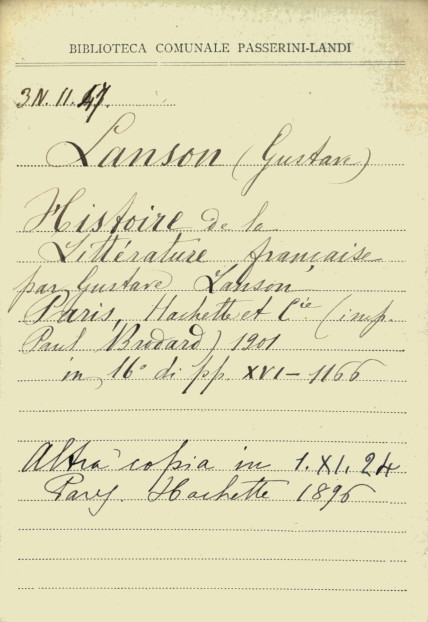 BIBLIOTECA COMUNALE PASSERINI-LANDI
3N. II. 47.
Lanson (Gustave)
Histoire de la
Littérature française
par Gustave Lanson
Paris, Hachette et Cie (imp.
Paul Brodard) 1901
in 16° di pp. XVI-1166
Altra copia in 1. XI. 24
Hachette 1896